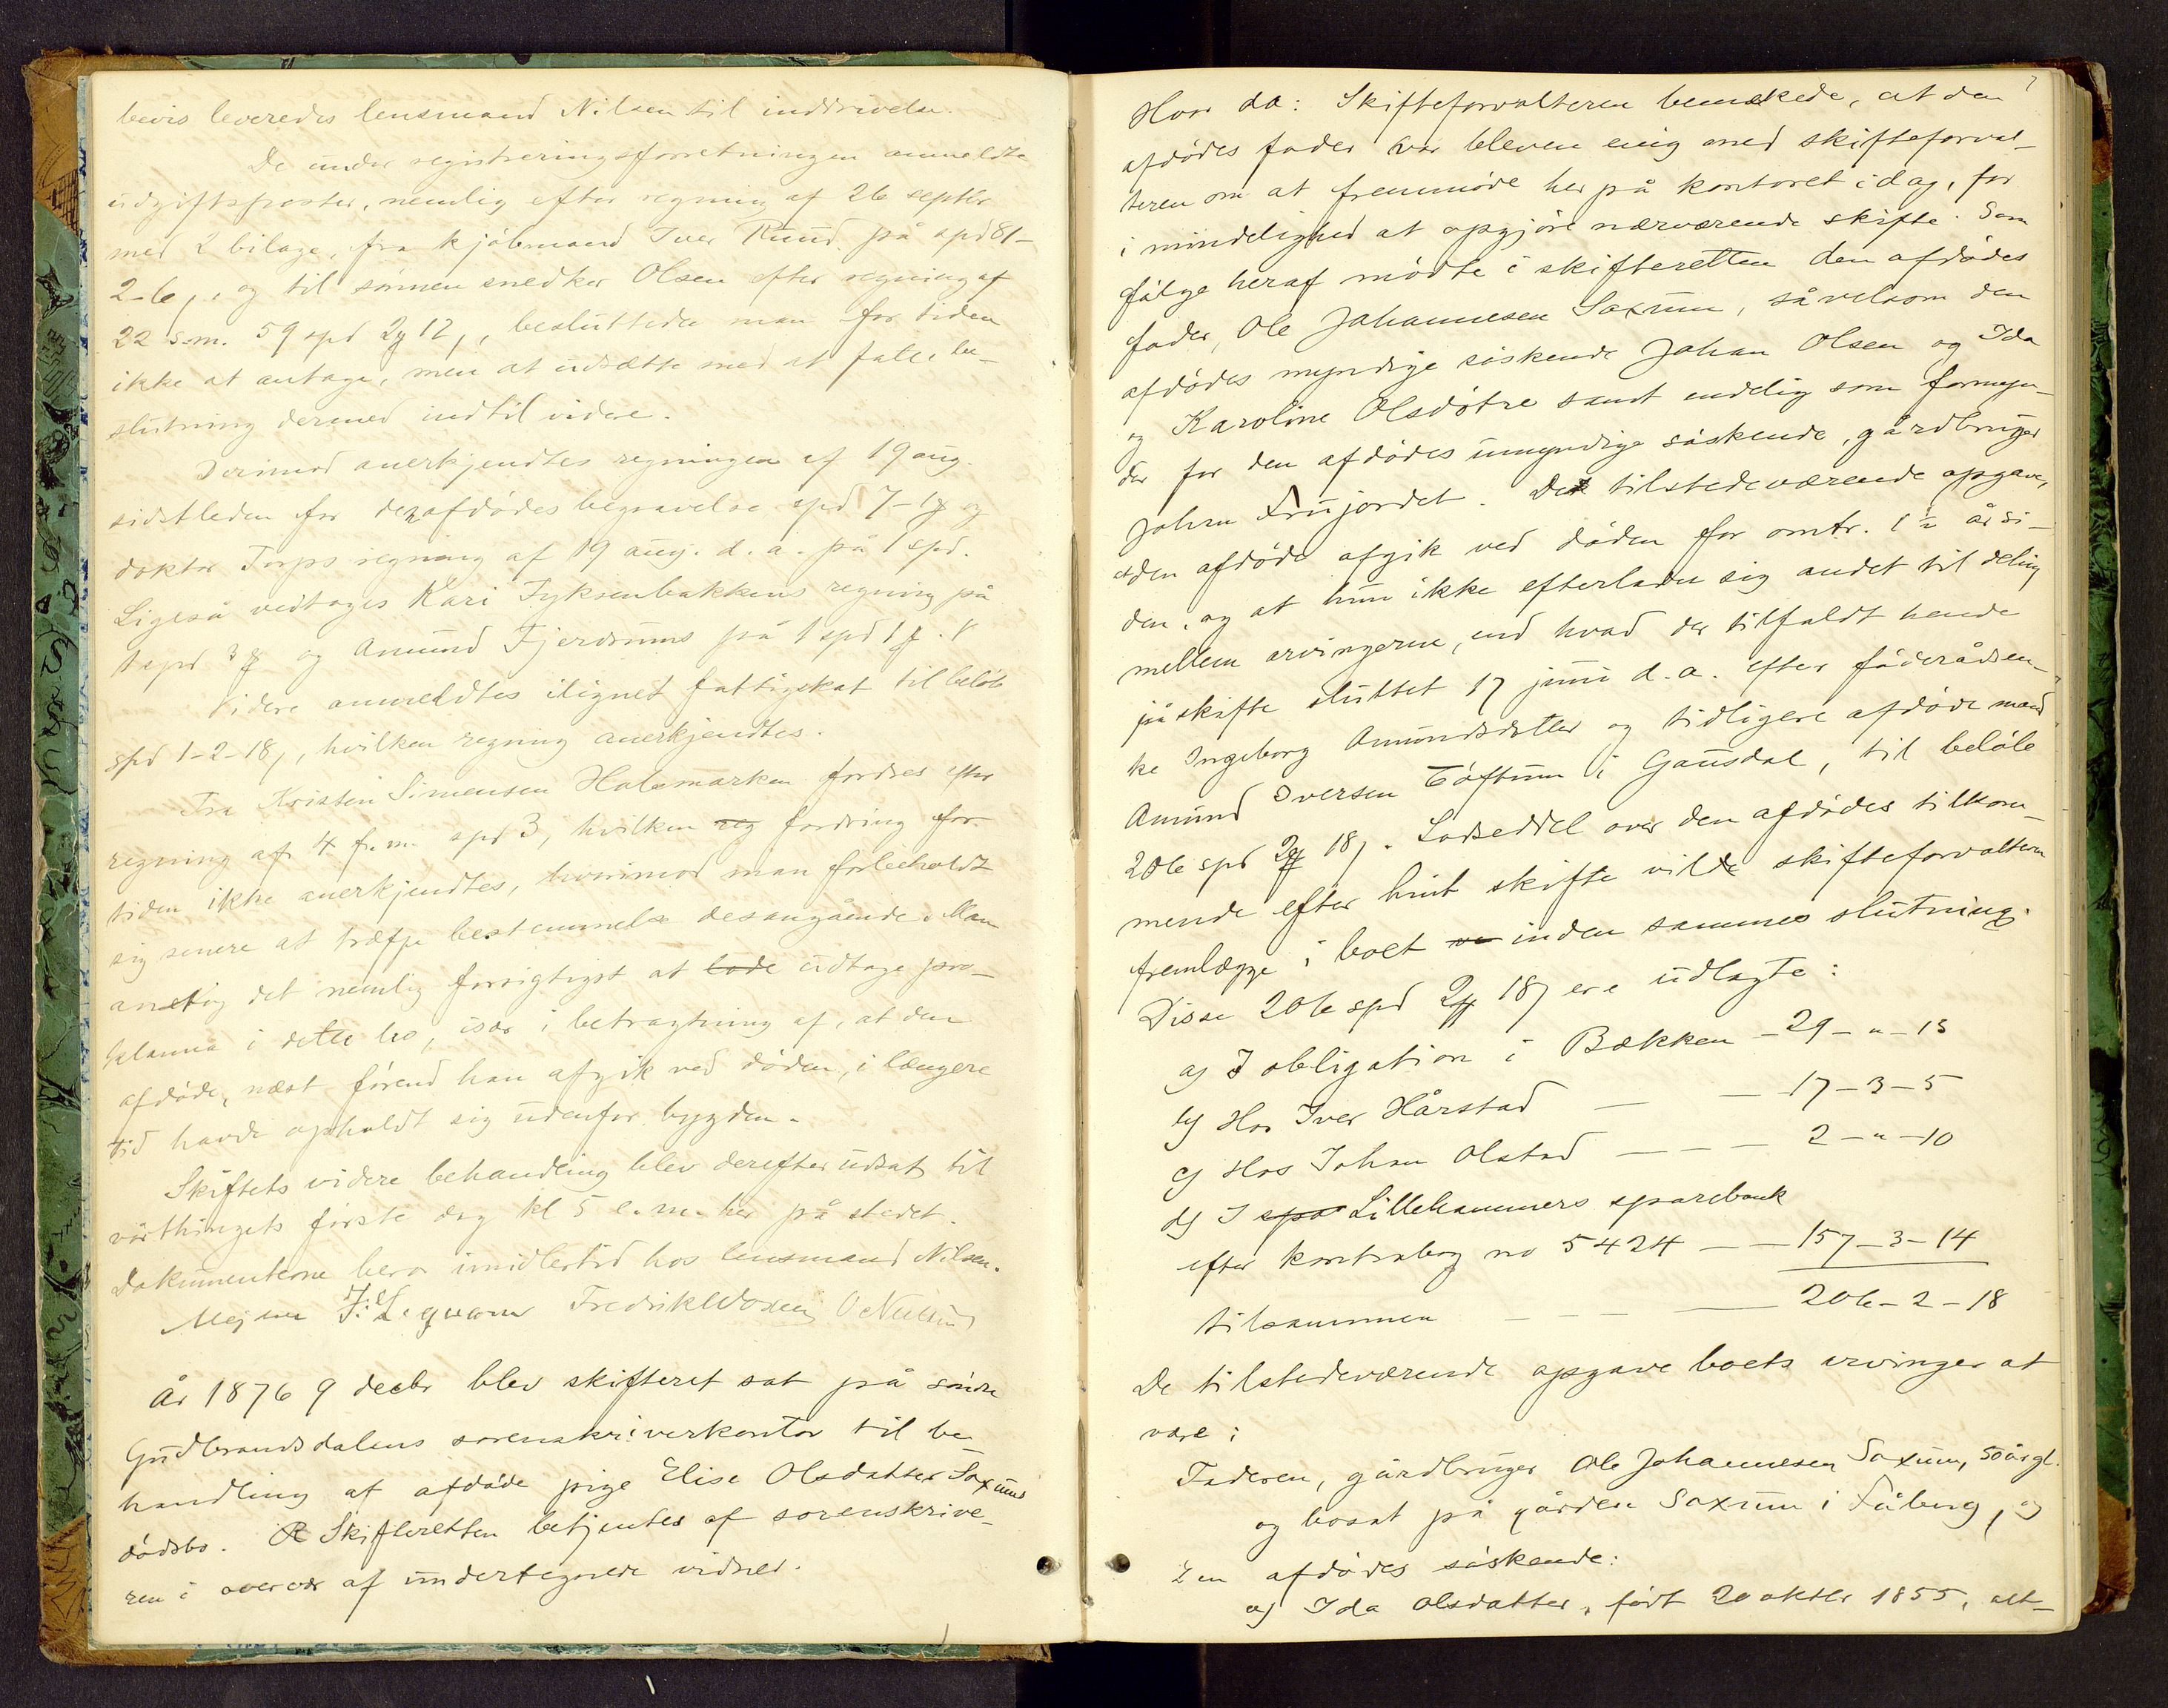 bevis leveredes lensmand Nilsen til inddrivelse.
De under registreringsforretningen anmeldte
udgiftsposter, nemlig efter regning af 26 septbr
med 2 bilage, fra kjöbmand Iver Ruud på spd 81-
2-6, og til sönnen snedker Olsen efter regning af
22 s.m. 59 spd 2 12, besluttede man for tiden
ikke at antage, men at udsætte med at fatte be-
slutning dermed indtil videre.
Derimod anerkjendtes regningen af 19 aug.
sidstleden for den afdødes begravelse spd 7-1 og
doktor Torps regning af 19 aug. d.a. på 1 spd.
Ligeså vedtoges Kari Fyksenbakkens regning på
1 spd 3 og Amund Fjerdrums på 1 spd 1.
Videre anmeldtes ilignet fattigskat til beløb
spd 1-2-18, hvilken regning anerkjendtes.
Fra Kristen Simensen Holsmarken fordres efter
regning af 4 f.m. spd 3, hvilken reg fordring for
tiden ikke anerkjendtes, hvorimod man forbeholdt
sig senere at træffe bestemmelse desangående. Man
antog det nemlig forsigtigst at lade udtage pro-
klama i dette bo, især i betragtning af, at den
afdøde, næst förend han afgik ved døden, i længere
tid havde opholdt sig udenfor bygden.
Skiftets videre behandling blev derefter udsat til
vårthingets første dag kl 5 e.m. her på stedet.
Dokumenterne bero imidlertid hos lensmand Nilsen.
Mejer Fredrik
År 1876 9 decbr blev skifteret sat på söndre
Gudbrandsdalens sorenskriverkontor til be-
handling af afdøde pige Elise Olsdatter Saxums
dødsbo. R Skifteretten betjentes af sorenskrive-
ren i overvær af undertegnede vidner.
Hvor da: Skifteforvalteren bemærkede, at den
afdødes fader var bleven enig med skifteforval-
teren om at fremmøde her på kontoret idag, for
i mindelighed at opgjøre nærværende skifte. Som
følge heraf mødte i skifteretten den afdødes
fader, Ole Johannesen Saxum, såvelsom den
afdødes myndige søskende Johan Olsen og Ida
og Karoline Olsdøtre samt endelig som formyn-
der for den afdødes umyndige søskende, gårdbruger
Johan Frujordet. De tilstedeværende opgave,
at den afdøde afgik ved døden for omtr. 1½ år si-
den, og at hun ikke efterlader sig andet til deling
mellem arvingerne, end hvad der tilfaldt hende
på skifte sluttet 17 juni d.a. efter føderådsen-
ke Ingeborg Amundsdatter og tidligere afdøde mand
Amund Iversen Töftum i Gausdal, til beløb
206 spd 2 18. Lodseddel over den afdødes tilkom-
mende efter hint skifte vilde skifteforvalteren
fremlægge i boet inden sammes slutning.
Disse 206 spd 2 18 ere udlagte:
a) I obligation i Bækken - 29 - " - 13
b) Hos Iver Hårstad — — 17 - 3 - 5
c) Hos Johan Olstad — — — 2 - " - 10
d) I spa Lillehammers sparebank
efter kontrabog no 5424 — — 157 - 3 - 14
tilsammen — — — 206 - 2 - 18
De tilstedeværende opgave boets arvinger at
være:
Faderen, gårdbruger Ole Johannesen Saxum, 50 årgl.
og bosat på gården Saxum i Fåberg, og
Den afdødes søskende:
a) Ida Olsdatter, født 20 oktbr 1855, alt-